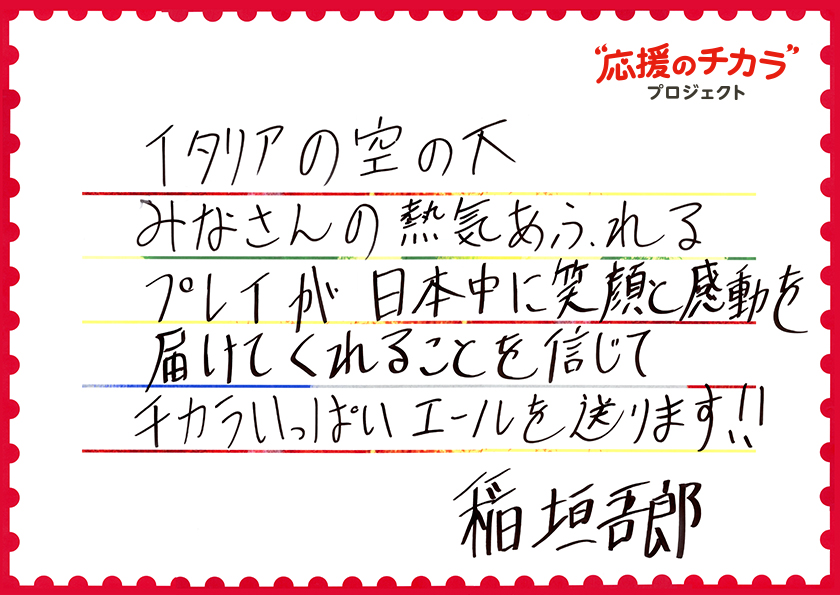 “応援のチカラ”
プロジェクト
イタリアの空の下
みなさんの熱気あふれる
プレイが日本中に笑顔と感動を
届けてくれることを信じて
チカラいっぱいエールを送ります!!
稲垣吾郎